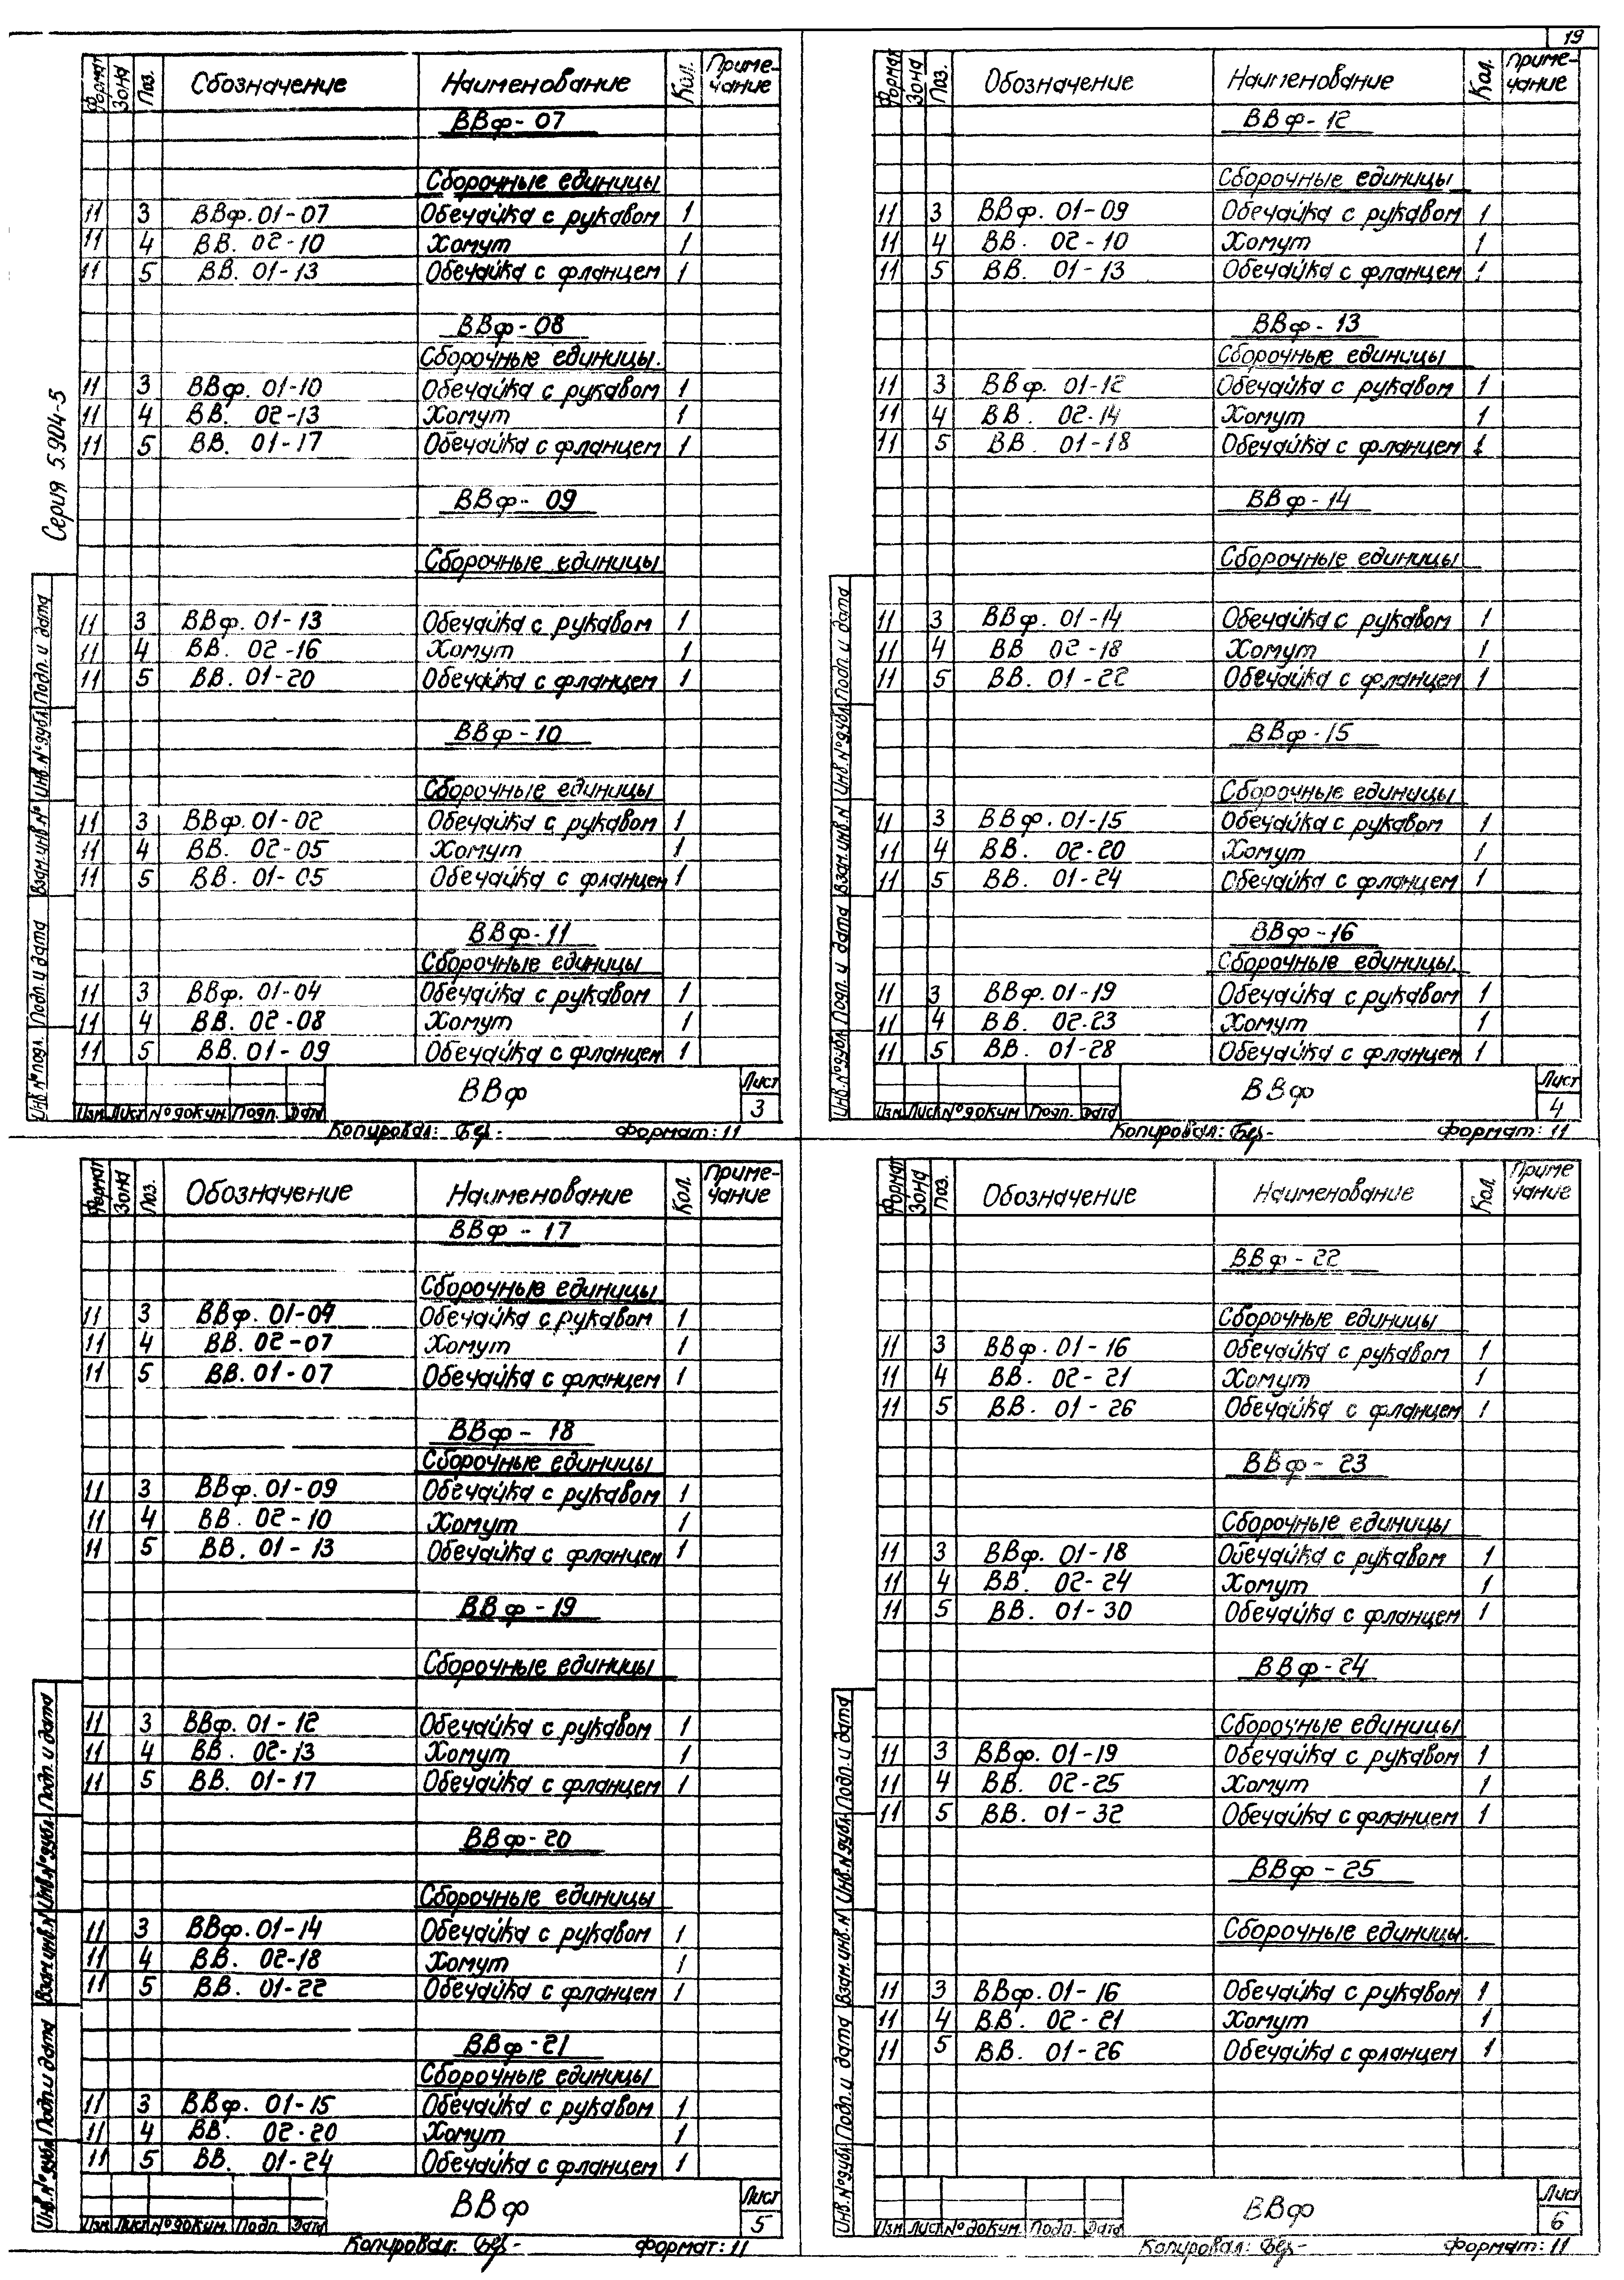 19
Серия 5.904-5
Формат Зона Поз. Обозначение Наименование Кол. Приме-чание
ВВф-07
Сборочные единицы
11 3 ВВф. 01-07 Обечайка с рукавом 1
11 4 ВВ. 02-10 Хомут 1
11 5 ВВ. 01-13 Обечайка с фланцем 1
ВВф-08
Сборочные единицы.
11 3 ВВф. 01-10 Обечайка с рукавом 1
11 4 ВВ. 02-13 Хомут 1
11 5 ВВ. 01-17 Обечайка с фланцем 1
ВВф-09
Сборочные единицы
11 3 ВВф. 01-13 Обечайка с рукавом 1
11 4 ВВ. 02-16 Хомут 1
11 5 ВВ. 01-20 Обечайка с фланцем 1
ВВф-10
Сборочные единицы
11 3 ВВф. 01-02 Обечайка с рукавом 1
11 4 ВВ. 02-05 Хомут 1
11 5 ВВ. 01-05 Обечайка с фланцем 1
ВВф-11
Сборочные единицы
11 3 ВВф. 01-04 Обечайка с рукавом 1
11 4 ВВ. 02-08 Хомут 1
11 5 ВВ. 01-09 Обечайка с фланцем 1
Инв.№ подл. Подп. и дата Взам.инв.№ Инв.№ дубл. Подп. и дата
Изм Лист № докум. Подп. Дата ВВф Лист 3
Копировал: Формат: 11
Формат Зона Поз. Обозначение Наименование Кол. Приме-чание
ВВф-12
Сборочные единицы
11 3 ВВф. 01-09 Обечайка с рукавом 1
11 4 ВВ. 02-10 Хомут 1
11 5 ВВ. 01-13 Обечайка с фланцем 1
ВВф-13
Сборочные единицы
11 3 ВВф. 01-12 Обечайка с рукавом 1
11 4 ВВ. 02-14 Хомут 1
11 5 ВВ. 01-18 Обечайка с фланцем 1
ВВф-14
Сборочные единицы
11 3 ВВф. 01-14 Обечайка с рукавом 1
11 4 ВВ 02-18 Хомут 1
11 5 ВВ. 01-22 Обечайка с фланцем 1
ВВф-15
Сборочные единицы
11 3 ВВф. 01-15 Обечайка с рукавом 1
11 4 ВВ. 02-20 Хомут 1
11 5 ВВ. 01-24 Обечайка с фланцем 1
ВВф-16
Сборочные единицы.
11 3 ВВф. 01-19 Обечайка с рукавом 1
11 4 ВВ. 02-23 Хомут 1
11 5 ВВ. 01-28 Обечайка с фланцем 1
Инв.№ дубл. Подп. и дата Взам.инв.№ Инв.№ дубл. Подп. и дата
Изм Лист № докум Подп. Дата ВВф Лист 4
Копировал: Формат: 11
Формат Зона Поз. Обозначение Наименование Кол. Приме-чание
ВВф-17
Сборочные единицы
11 3 ВВф. 01-04 Обечайка с рукавом 1
11 4 ВВ. 02-07 Хомут 1
11 5 ВВ. 01-07 Обечайка с фланцем 1
ВВф-18
Сборочные единицы
11 3 ВВф. 01-09 Обечайка с рукавом 1
11 4 ВВ. 02-10 Хомут 1
11 5 ВВ. 01-13 Обечайка с фланцем 1
ВВф-19
Сборочные единицы
11 3 ВВф. 01-12 Обечайка с рукавом 1
11 4 ВВ. 02-13 Хомут 1
11 5 ВВ. 01-17 Обечайка с фланцем 1
ВВф-20
Сборочные единицы
11 3 ВВф. 01-14 Обечайка с рукавом 1
11 4 ВВ. 02-18 Хомут 1
11 5 ВВ. 01-22 Обечайка с фланцем 1
ВВф-21
Сборочные единицы
11 3 ВВф. 01-15 Обечайка с рукавом 1
11 4 ВВ. 02-20 Хомут 1
11 5 ВВ. 01-24 Обечайка с фланцем 1
Инв.№ дубл. Подп. и дата Взам.инв.№ Инв.№ дубл. Подп. и дата
Изм Лист № докум. Подп. Дата ВВф Лист 5
Копировал: Формат: 11
Формат Зона Поз. Обозначение Наименование Кол. Приме чание
ВВф-22
Сборочные единицы
11 3 ВВф. 01-16 Обечайка с рукавом 1
11 4 ВВ. 02-21 Хомут 1
11 5 ВВ. 01-26 Обечайка с фланцем 1
ВВф-23
Сборочные единицы
11 3 ВВф. 01-18 Обечайка с рукавом 1
11 4 ВВ. 02-24 Хомут 1
11 5 ВВ. 01-30 Обечайка с фланцем 1
ВВф-24
Сборочные единицы
11 3 ВВф. 01-19 Обечайка с рукавом 1
11 4 ВВ. 02-25 Хомут 1
11 5 ВВ. 01-32 Обечайка с фланцем 1
ВВф-25
Сборочные единицы.
11 3 ВВф. 01-16 Обечайка с рукавом 1
11 4 ВВ. 02-21 Хомут 1
11 5 ВВ. 01-26 Обечайка с фланцем 1
Инв.№ дубл. Подп. и дата Взам.инв.№ Инв.№ дубл. Подп. и дата
Изм Лист № докум. Подп. Дата ВВф Лист 6
Копировал: Формат: 11